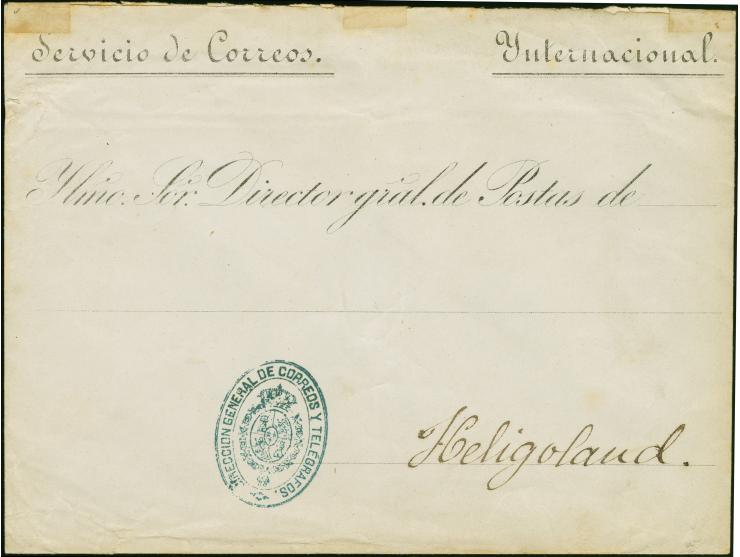 Servicio de Correos. Ynternacional.
Ylmo. Sór. Director gral. de Postas de
DIRECCION GENERAL DE CORREOS Y TELEGRAFOS.
Heligoland.